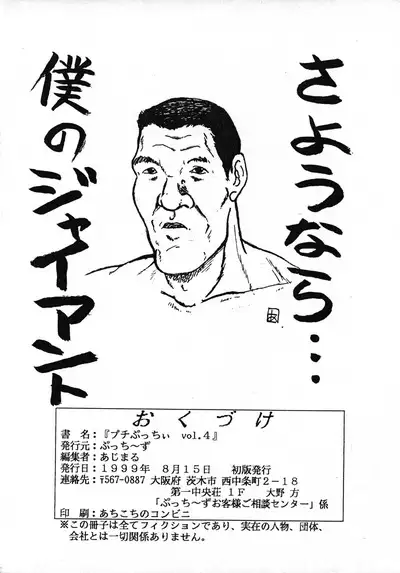 さようなら…
僕のジャイアント
おくづけ
書 名:『プチぷっちぃ vol.4』
発行元:ぷっち~ず
編集者:あじまる
発行日:1999年 8月15日 初版発行
連絡先:〒567-0887 大阪府 茨木市 西中条町2-18
第一中央荘 1F 大野 方
「ぷっち~ずお客様ご相談センター」係
印 刷:あちこちのコンビニ
※この冊子は全てフィクションであり、実在の人物、団体、
会社とは一切関係ありません。